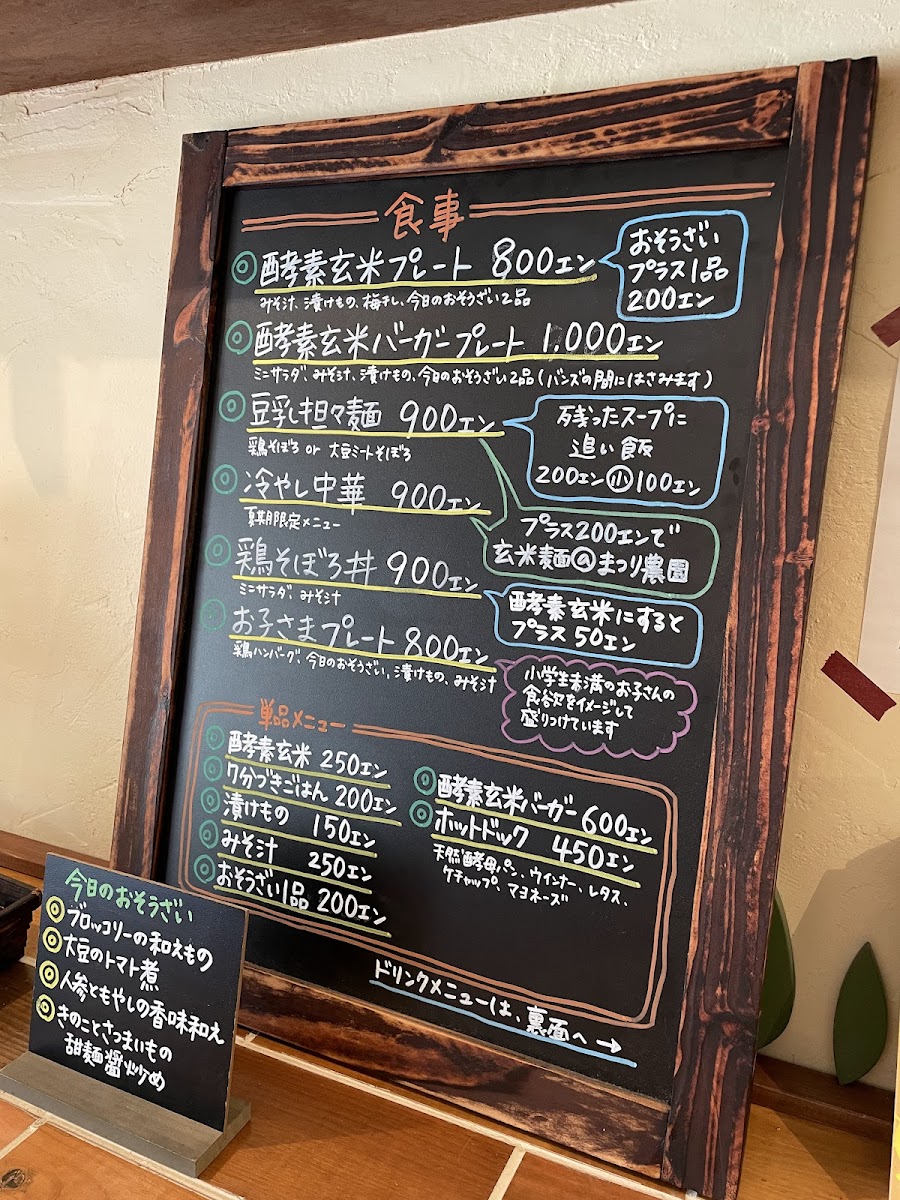 食事
酵素玄米プレート 800エン
みそ汁、漬けもの、梅干し、今日のおそうざい2品
おそうざい
プラス1品
200エン
酵素玄米バーガープレート 1,000エン
ミニサラダ、みそ汁、漬けもの、今日のおそうざい2品(バンズの間にはさみます)
豆乳担々麺 900エン
鶏そぼろ or 大豆ミートそぼろ
残ったスープに
追い飯
200エン 小 100エン
冷やし中華 900エン
夏期限定メニュー
プラス200エンで
玄米麺@まつり農園
鶏そぼろ丼 900エン
ミニサラダ、みそ汁
酵素玄米にすると
プラス50エン
お子さまプレート 800エン
鶏ハンバーグ、今日のおそうざい、漬けもの、みそ汁
小学生未満のお子さんの
食欲をイメージして
盛りつけています
単品メニュー
酵素玄米 250エン
7分づきごはん 200エン
漬けもの 150エン
みそ汁 250エン
おそうざい1品 200エン
酵素玄米バーガー 600エン
ホットドック 450エン
天然酵母パン、ウインナー、レタス、
ケチャップ、マヨネーズ
ドリンクメニューは、裏面へ→
今日のおそうざい
ブロッコリーの和えもの
大豆のトマト煮
人参ともやしの香味和え
きのことさつまいもの
甜麺醤炒め